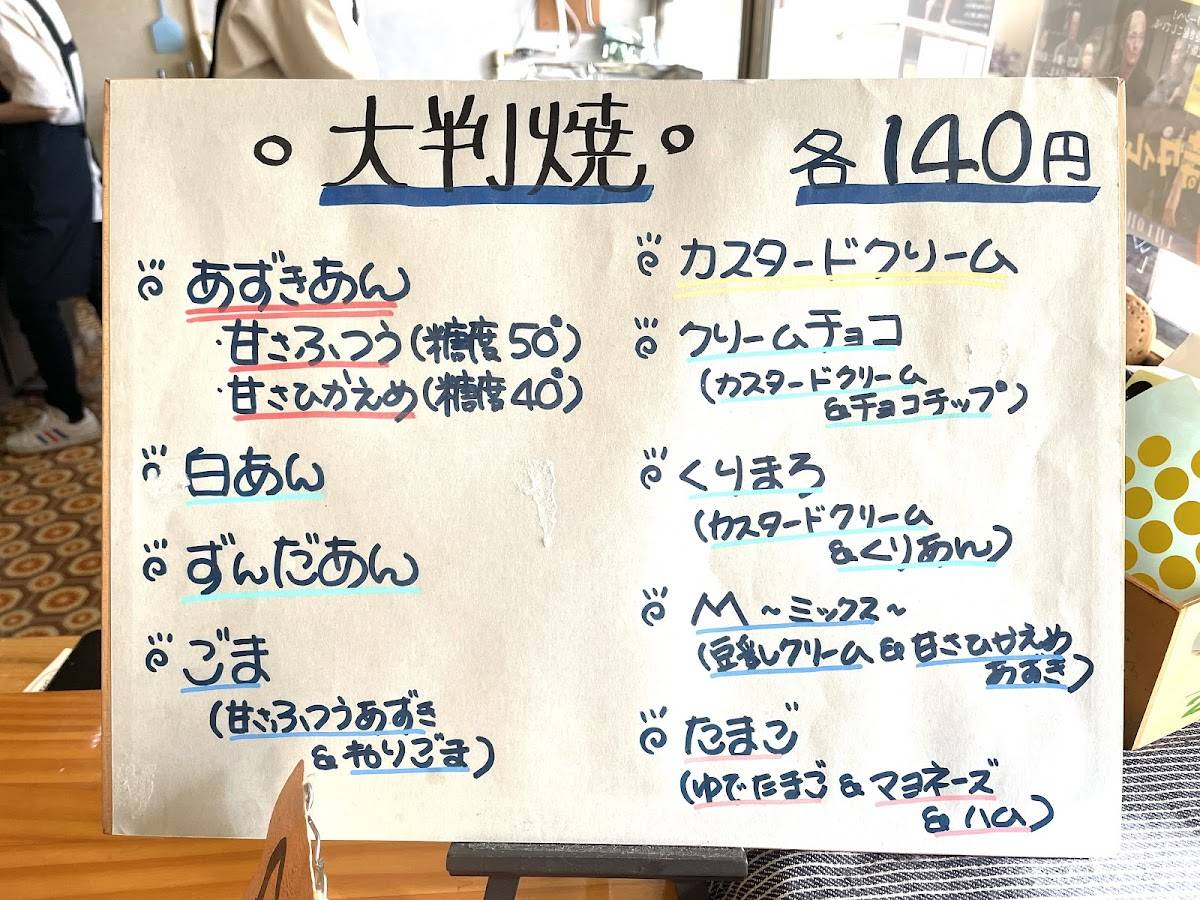 大判焼
各140円
あずきあん
・甘さふつう(糖度50°)
・甘さひかえめ(糖度40°)
白あん
ずんだあん
ごま
(甘さふつうあずき
&ねりごま)
カスタードクリーム
クリームチョコ
(カスタードクリーム
&チョコチップ)
くりまろ
(カスタードクリーム
&くりあん)
M～ミックス～
(豆乳クリーム&甘さひかえめ
あずき)
たまご
(ゆでたまご&マヨネーズ
&ハム)